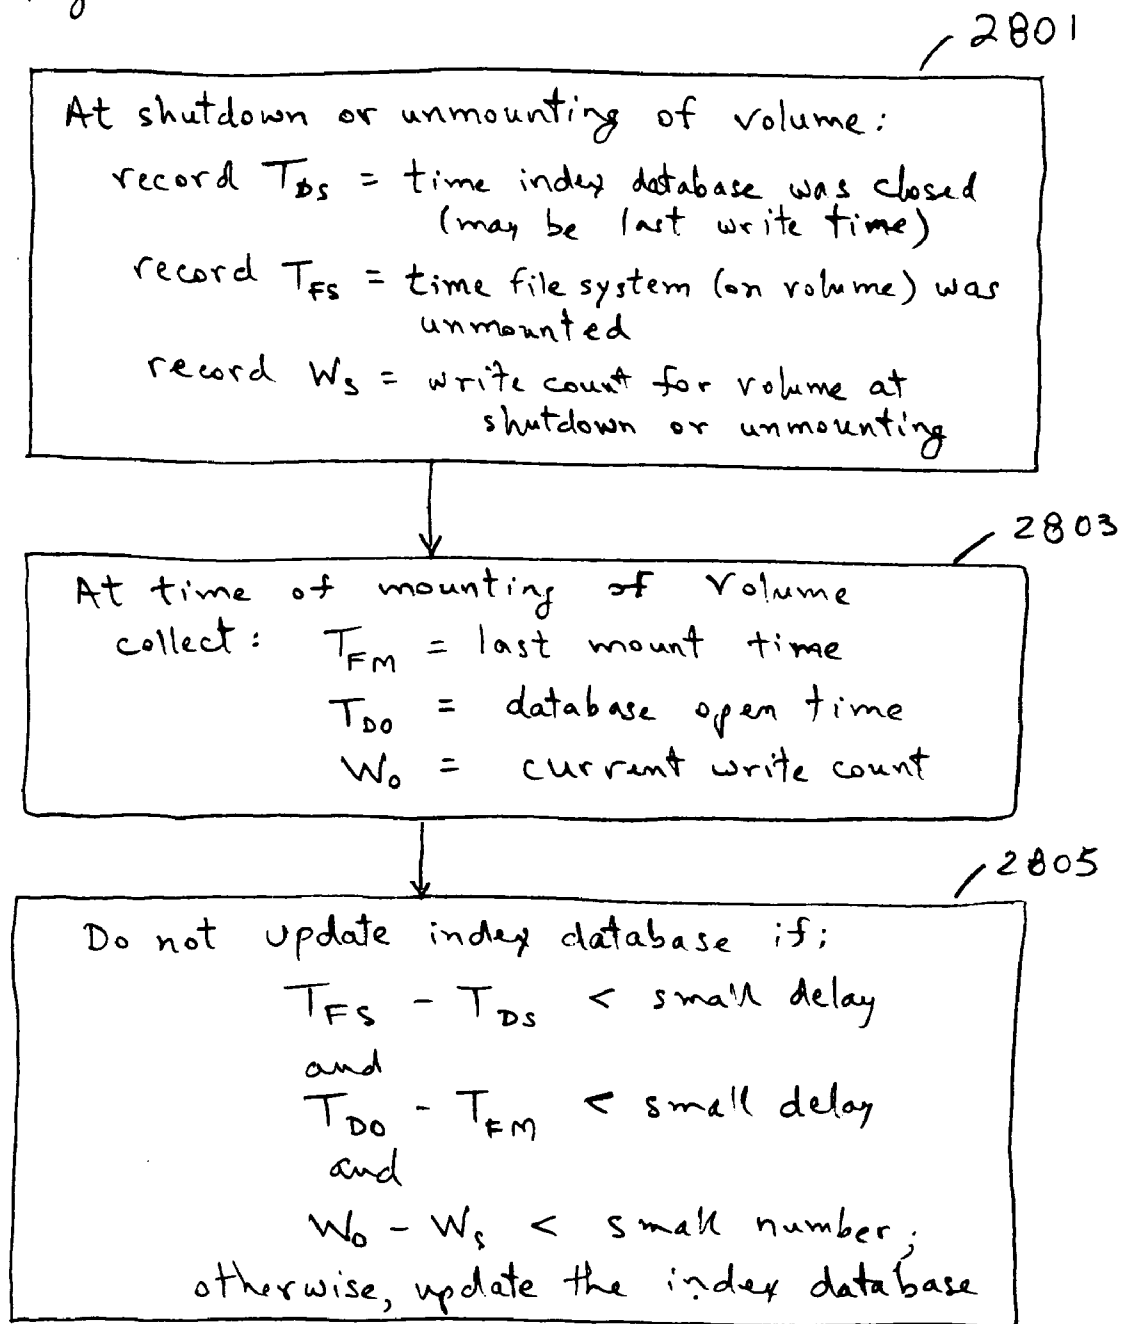 2801
At shutdown or unmounting of volume:
record T_DS = time index database was closed
(may be last write time)
record T_FS = time file system (on volume) was
unmounted
record W_S = write count for volume at
shutdown or unmounting
2803
At time of mounting of Volume
collect: T_FM = last mount time
T_DO = database open time
W_O = current write count
2805
Do not update index database if;
T_FS - T_DS < small delay
and
T_DO - T_FM < small delay
and
W_O - W_S < small number;
otherwise, update the index database